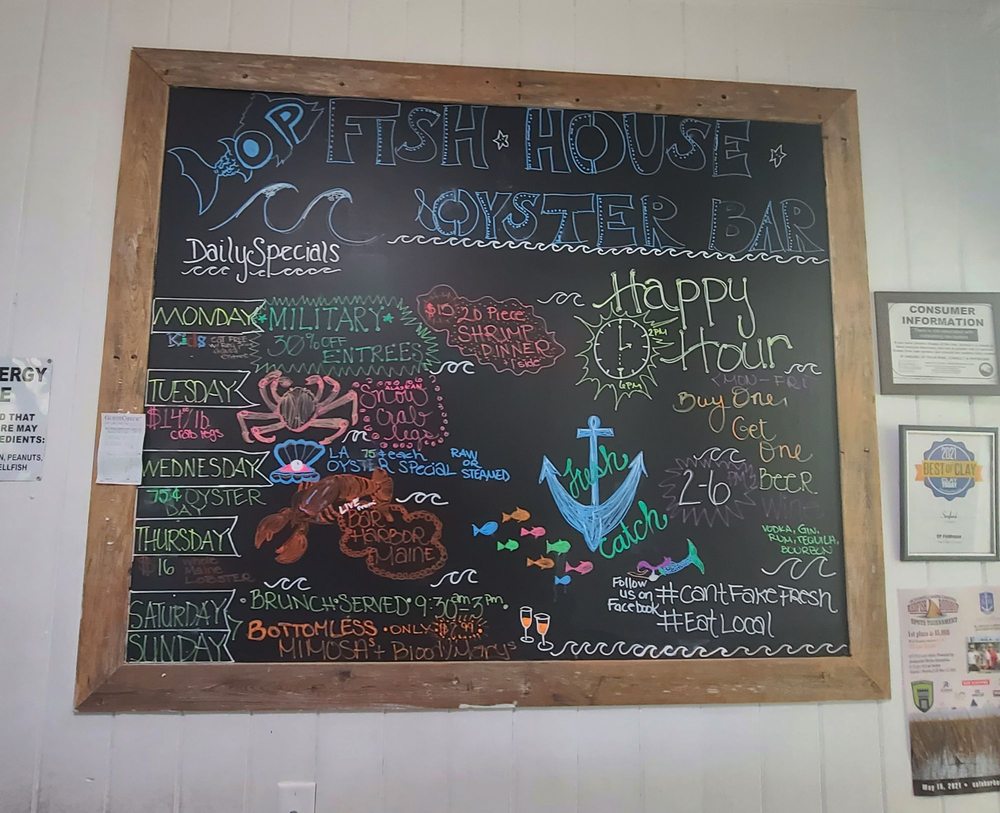 OP FISH HOUSE
OYSTER BAR
Daily Specials
MONDAY
Kids EAT FREE
MILITARY
30% OFF
ENTREES
$15 20 Piece
SHRIMP
DINNER
1 side
Happy
Hour
2PM
6PM
<MON-FRI
Buy One,
Get
One
BEER
2-6 PM
VODKA, GIN,
RUM, TEQUILA,
BOURBON
TUESDAY
$14 /lb.
crab legs
ALASKAN
Snow
Crab
legs
WEDNESDAY
75¢ OYSTER
DAY
LA 75¢ each
OYSTER SPECIAL
RAW
OR
STEAMED
THURSDAY
$16 WHOLE
MAINE
LOBSTER
LIVE from:
BAR
HARBOR
MAINE
fresh
catch
SATURDAY
SUNDAY
•BRUNCH•SERVED• 9:30am-3pm
BOTTOMLESS •ONLY
MIMOSAs + Bloody Marys
Follow
us on
Facebook
#CantFakeFresh
#EatLocal
ERGY
E
D THAT
RE MAY
EDIENTS:
N, PEANUTS,
LLFISH
CONSUMER
INFORMATION
2021
BEST OF CLAY
CLAY TODAY
Seafood
OP FishHouse
1st place is $5,000
May 15, 2021